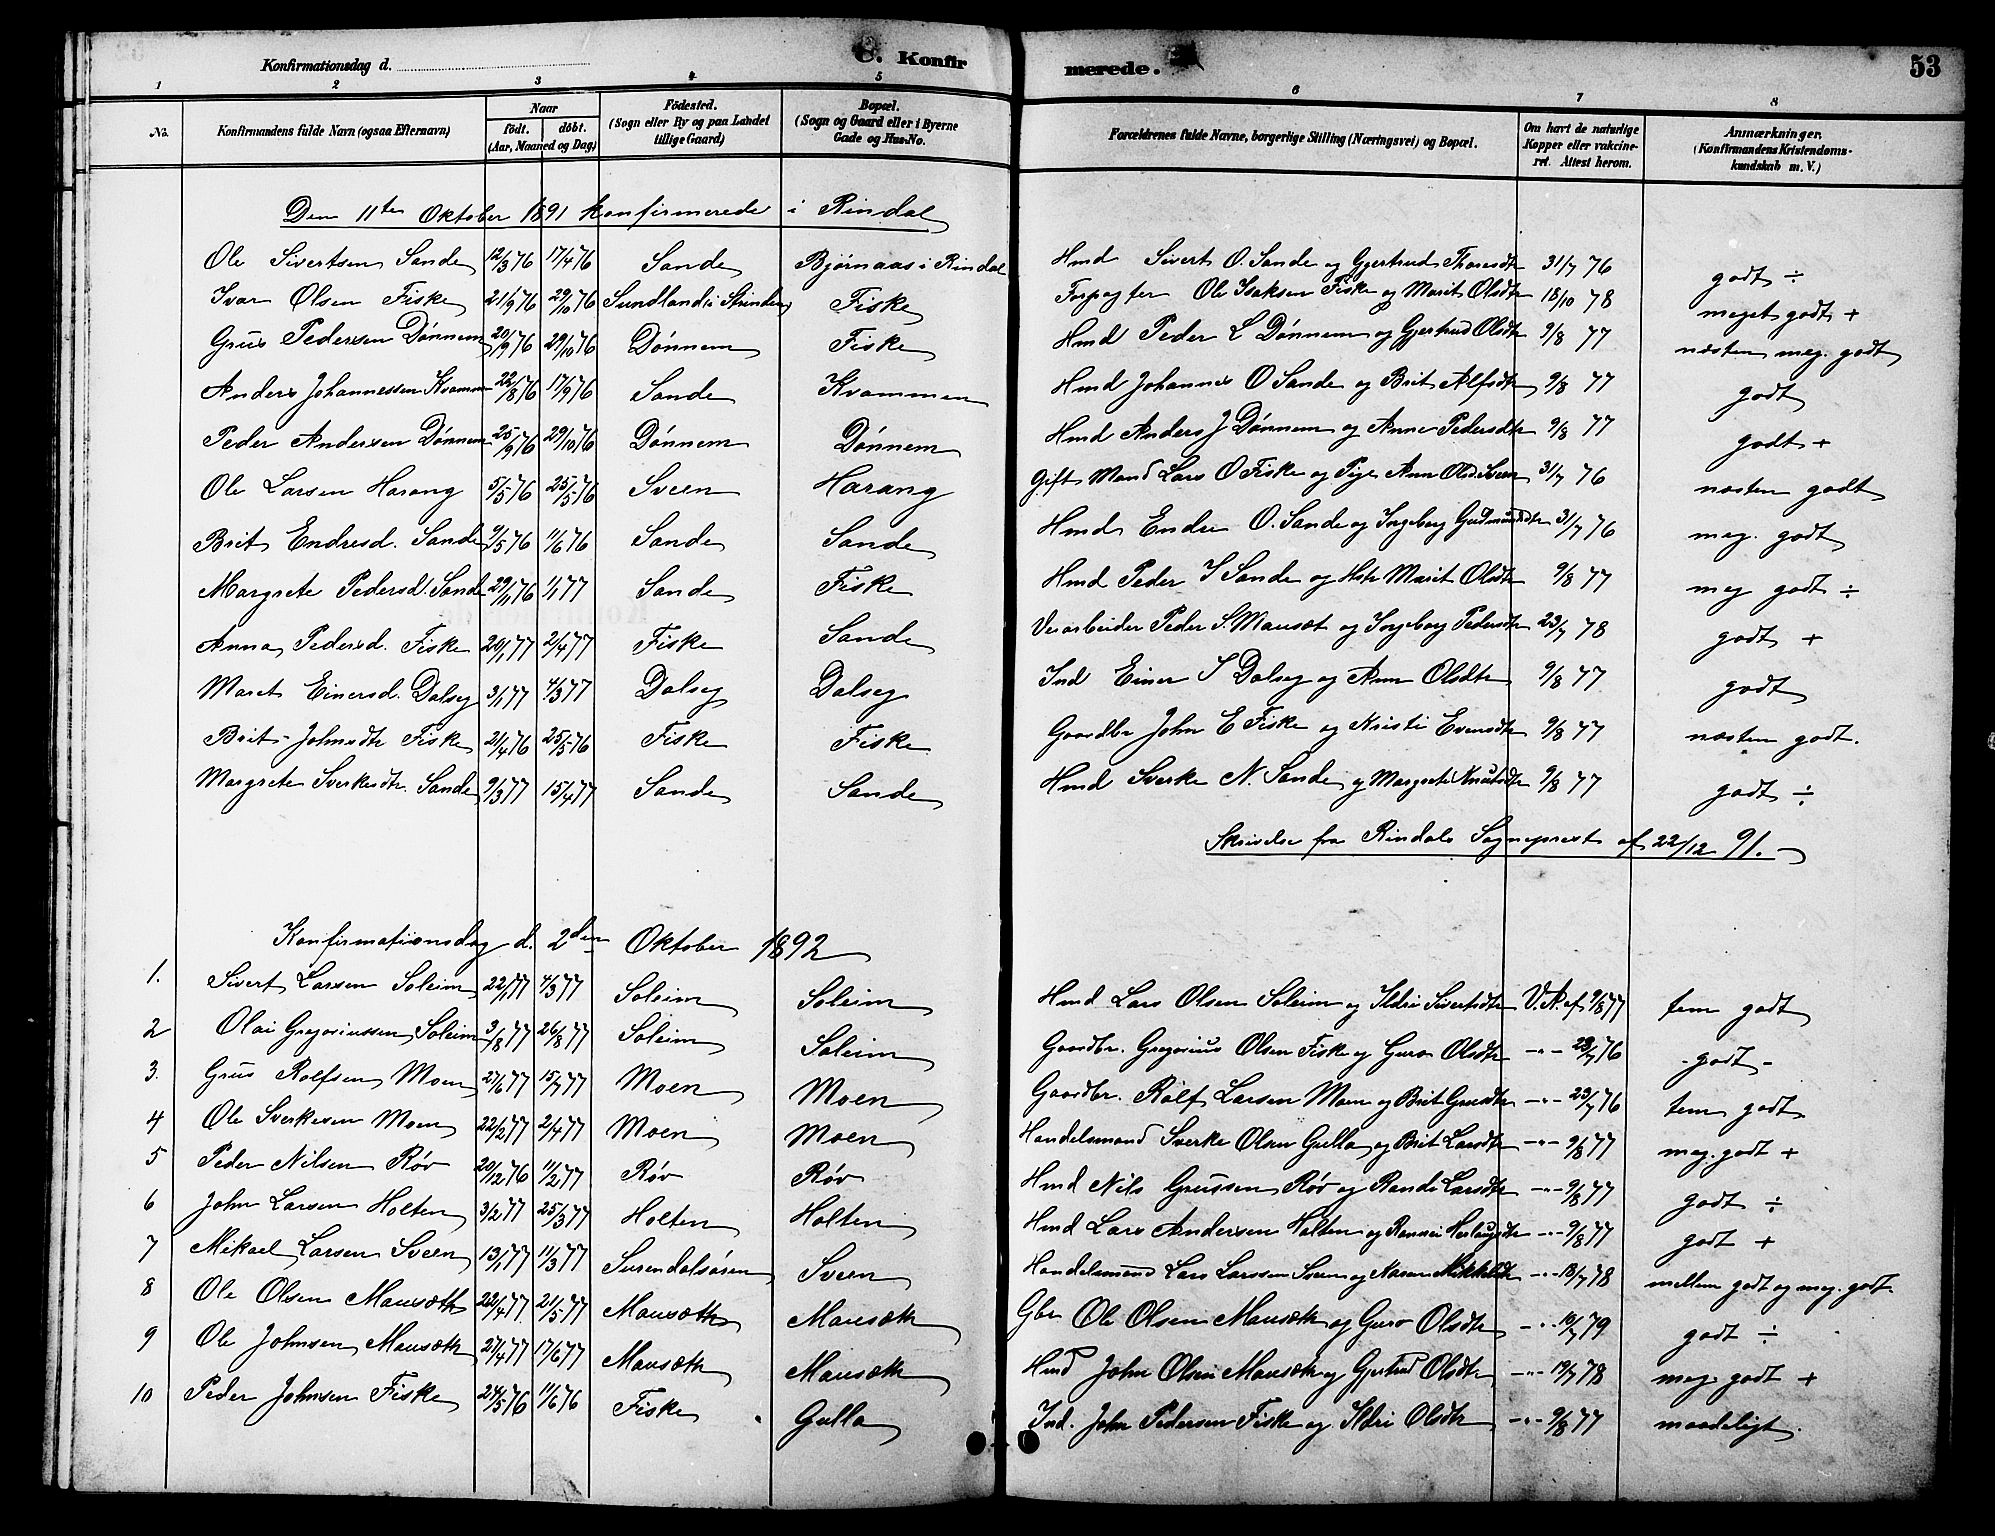 Konfirmationsdag d.
C. Konfirmerede.
53
1 2 3 4 5 6 7 8
No. Konfirmandens fulde Navn (ogsaa Efternavn) Naar født. døbt. (Aar, Maaned og Dag) Fødested. (Sogn eller By og paa Landet tillige Gaard) Bopæl. (Sogn og Gaard eller i Byerne Gade og Hus-No. Forældrenes fulde Navne, borgerlige Stilling (Næringsvei) og Bopæl. Om havt de naturlige Kopper eller vakcineret. Attest herom. Anmærkninger. (Konfirmandens Kristendomskundskab m. V.)
Den 11te Oktober 1891 konfirmerede i Rindal
Ole Sivertsen Sande 12/3 76 17/4 76 Sande Bjørnaas i Rindal Hmd Sivert O. Sande og Gjertrud Thoresdtr 31/7 76 godt ÷
Ivar Olsen Fiske 21/9 76 29/10 76 Sundland i Strinden Fiske Forpagter Ole Isaksen Fiske og Marit Olsdtr 18/10 78 meget godt +
Grus Pedersen Dønnem 20/9 76 29/10 76 Dønnem Fiske Hmd Peder L Dønnem og Gjertrud Olsdtr 9/8 77 næsten meg. godt
Anders Johannessen Kvammen 22/8 76 17/9 76 Sande Kvammen Hmd Johannes O Sande og Brit Alfsdtr 9/8 77 godt
Peder Andersen Dønnem 25/9 76 29/10 76 Dønnem Dønnem Hmd Anders J Dønnem og Anne Pedersdtr 9/8 77 godt +
Ole Larsen Harang 5/5 76 25/5 76 Sveen Harang Gift Mand Lars O Fiske og Pige Ann Olsd. Sveen 31/7 76 næsten godt
Brit Endresd. Sande 9/5 76 11/6 76 Sande Sande Hmd Endre O. Sande og Ingeborg Gudmundsdtr 31/7 76 meg. godt
Margrete Pedersd. Sande 29/11 76 1/1 77 Sande Fiske Hmd Peder I Sande og Hstr Marit Olsdtr 9/8 77 meg godt ÷
Anna Pedersd. Fiske 20/1 77 2/4 77 Fiske Sande Veiarbeider Peder S. Mausæt og Ingeborg Pedersdtr 23/7 78 godt +
Maret Einersd. Dalseg 3/1 77 4/3 77 Dalseg Dalseg Ind Einer I Dalseg og Ann Olsdtr 9/8 77 godt
Brit Johnsdtr Fiske 21/4 76 25/5 76 Fiske Fiske Gaardbr John E Fiske og Kristi Evensdtr 9/8 77 næsten godt.
Margrete Sverkesdtr. Sande 9/3 77 15/4 77 Sande Sande Hmd Sverke N. Sande og Margrete Knutsdtr 9/8 77 godt ÷
Skrivelse fra Rindals Sogneprest af 22/12 91.
Konfirmationsdag d. 2den Oktober 1892
1. Sivert Larsen Soleim 22/1 77 4/3 77 Soleim Soleim Hmd Lars Olsen Soleim og Ildri Sivertsdtr V. A. af 9/8 77 tem godt
2 Olai Gregoriussen Soleim 3/8 77 26/8 77 Soleim Soleim Gaardbr. Gregorius Olsen Fiske og Guro Olsdtr -"- 23/7 76 -godt-
3. Grus Rolfsen Moen 27/6 77 15/7 77 Moen Moen Gaardbr. Rolf Larsen Moen og Brit Grusdtr -"- 23/7 76 tem godt
4 Ole Sverkesen Moen 22/2 77 2/4 77 Moen Moen Handelsmand Sverke Olsen Gulla og Brit Larsdtr -"- 9/8 77 meg. godt +
5 Peder Nilsen Røv 20/12 76 11/2 77 Røv Røv Hmd Nils Grussen Røv og Randi Larsdtr -"- 9/8 77 godt ÷
6 John Larsen Holten 3/2 77 25/3 77 Holten Holten Hmd Lars Andersen Holten og Rannei Herlaugsdtr -"- 9/8 77 godt +
7 Mikael Larsen Sveen 13/1 77 11/3 77 Surendalsøren Sveen Handelsmand Lars Larssen Sveen og Maren Mikkelsdtr -"- 18/7 78 mellem godt og meg. godt.
8 Ole Olsen Mausæth 22/4 77 21/5 77 Mausæth Mausæth Gbr Ole Olsen Mausæth og Guro Olsdtr -"- 10/7 79 godt ÷
9 Ole Johnsen Mausæth 27/4 77 17/6 77 Mausæth Mausæth Hmd John Olsen Mausæth og Gjertrud Olsdtr -"- 19/7 78 meg. godt +
10 Peder Johnsen Fiske 24/5 76 11/6 76 Fiske Gulla Ind. John Pedersen Fiske og Ildri Olsdtr -"- 9/8 77 maadeligt.